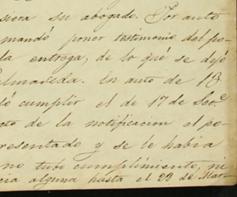 siera su abogado. Por auto
mandó poner testimonio del po-
la entrega, de lo que se dejó
Almaseda. En auto de 19
ló cumplir el de 17 de
to de la notificacion el po-
resentado y se le habia
no tubo cumplimiento, ni
cia alguna hasta el 29 de Mar-